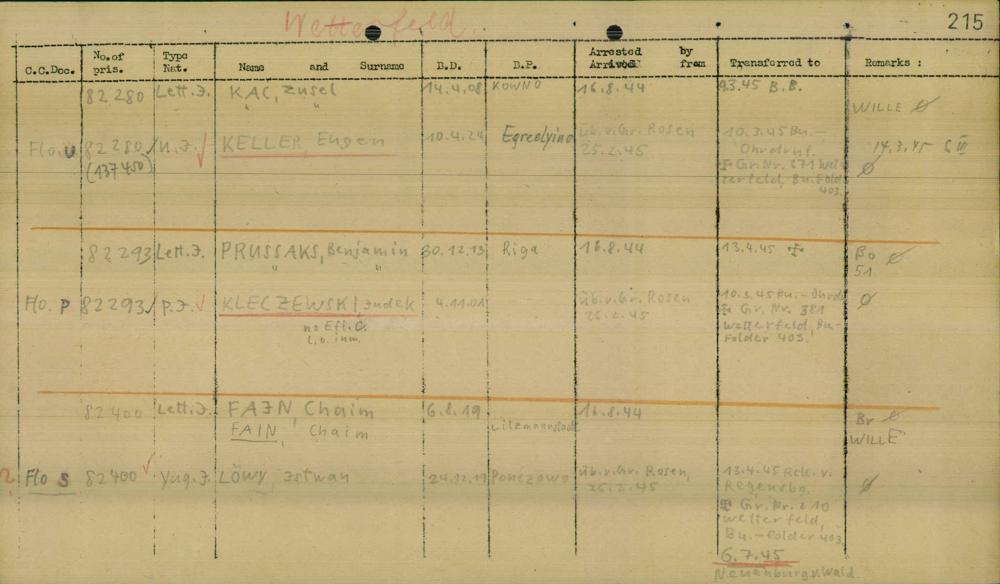 Wetterfeld
215
C.C.Doc. No. of pris. Type Nat. Name and Surname B.D. B.P. Arrested by Arrived from Transferred to Remarks :
82 280 Lett.J. KAC, Zusel 14.4.08 KOWNO 16.8.44 9.3.45 B.B.
" "
WILLE Ø
Flo. U 82 280 U.J. KELLER, Eugen 10.4.24 üb.v.Gr. Rosen 10.3.45 Bu.-
(137450) 25.2.45 Ohrdruf. 14.3.45
Gr. Nr. 371 Wet- Ø
terfeld, Bu. Fold.
403.
82 293 Lett.J. PRUSSAKS, Benjamin 30.12.13 Riga 16.8.44 13.4.45 Bo Ø
" " 51
Flo. P 82293 P.J. KLECZEWSKI, Judek 4.11.01 üb.v.Gr. Rosen 10.3.45 Bu.- Ohrd. Ø
no Eff. C. 25.2.45 Gr. Nr. 381
Wetterfeld, Bu-
Folder 403.
82 400 Lett.J. FAJN Chaim 6.8.19 16.8.44 Br Ø
FAIN, Chaim Litzmannstadt WILLE
? Flo S 82400 Yug.J. LÖWY, Istwan 24.12.19 Ponczowo üb.v.Gr. Rosen, 13.4.45 Rek. v. Ø
25.2.45 Regensbg.
Gr. Nr. 210
Wetterfeld,
Bu.-Folder 403,
6.7.45
Neunburg v. Wald.